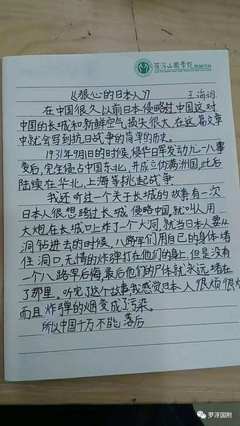 罗浮山国学院
《狠心的日本人》 王
在中国很久以前日本侵略过中国这对
中国的长城和新鲜空气损失很大,在这篇文章
中就会写到抗日战争的简单的历史。
1931年9月18的时候,侵华日军发动九一八事
变后,完全侵占中国东北,并成立伪满洲国,此后
陆续在华北,上海等挑起战争
我还听过一个关于长城的故事有一次
日本人很想越过长城,侵略中国,就叫人用
大炮在长城口上炸了一个大洞,就当日本人要从
洞钻进去的时候,八路军们用自已的身体堵
住洞口,无情的炸弹打在他们的身上,但是没有
一个八路军后悔,最后他们的尸体就永远堵在
了那里。听完了这个故事我感觉日本人很烦很
而且炸弹的烟变成了污染。
所以中国千万不能落后
罗浮国附